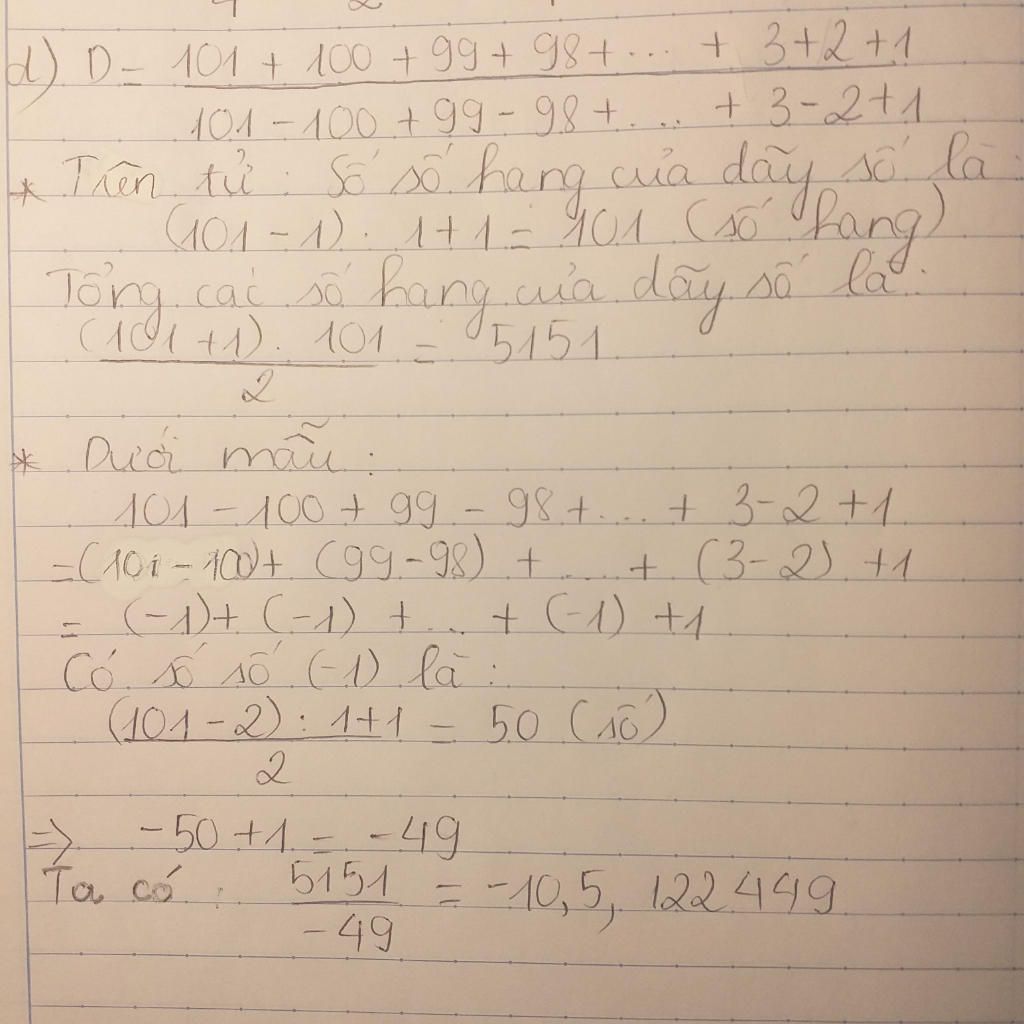 d) D = 101 + 100 + 99 + 98 + ... + 3 + 2 + 1
101 - 100 + 99 - 98 + ... + 3 - 2 + 1
* Trên tử : Số số hang của dãy số là :
(101 - 1) . 1 + 1 = 101 (số hang)
Tổng các số hang của dãy số là :
(101 + 1) . 101 = 5151
2
* Dưới mẫu :
101 - 100 + 99 - 98 + ... + 3 - 2 + 1
= (101 - 100) + (99 - 98) + ... + (3 - 2) + 1
= (-1) + (-1) + ... + (-1) + 1
Có số số (-1) là :
(101 - 2) : 1 + 1 = 50 (số)
2
=> -50 + 1 = -49
Ta có : 5151 = -10,5, 122449
-49